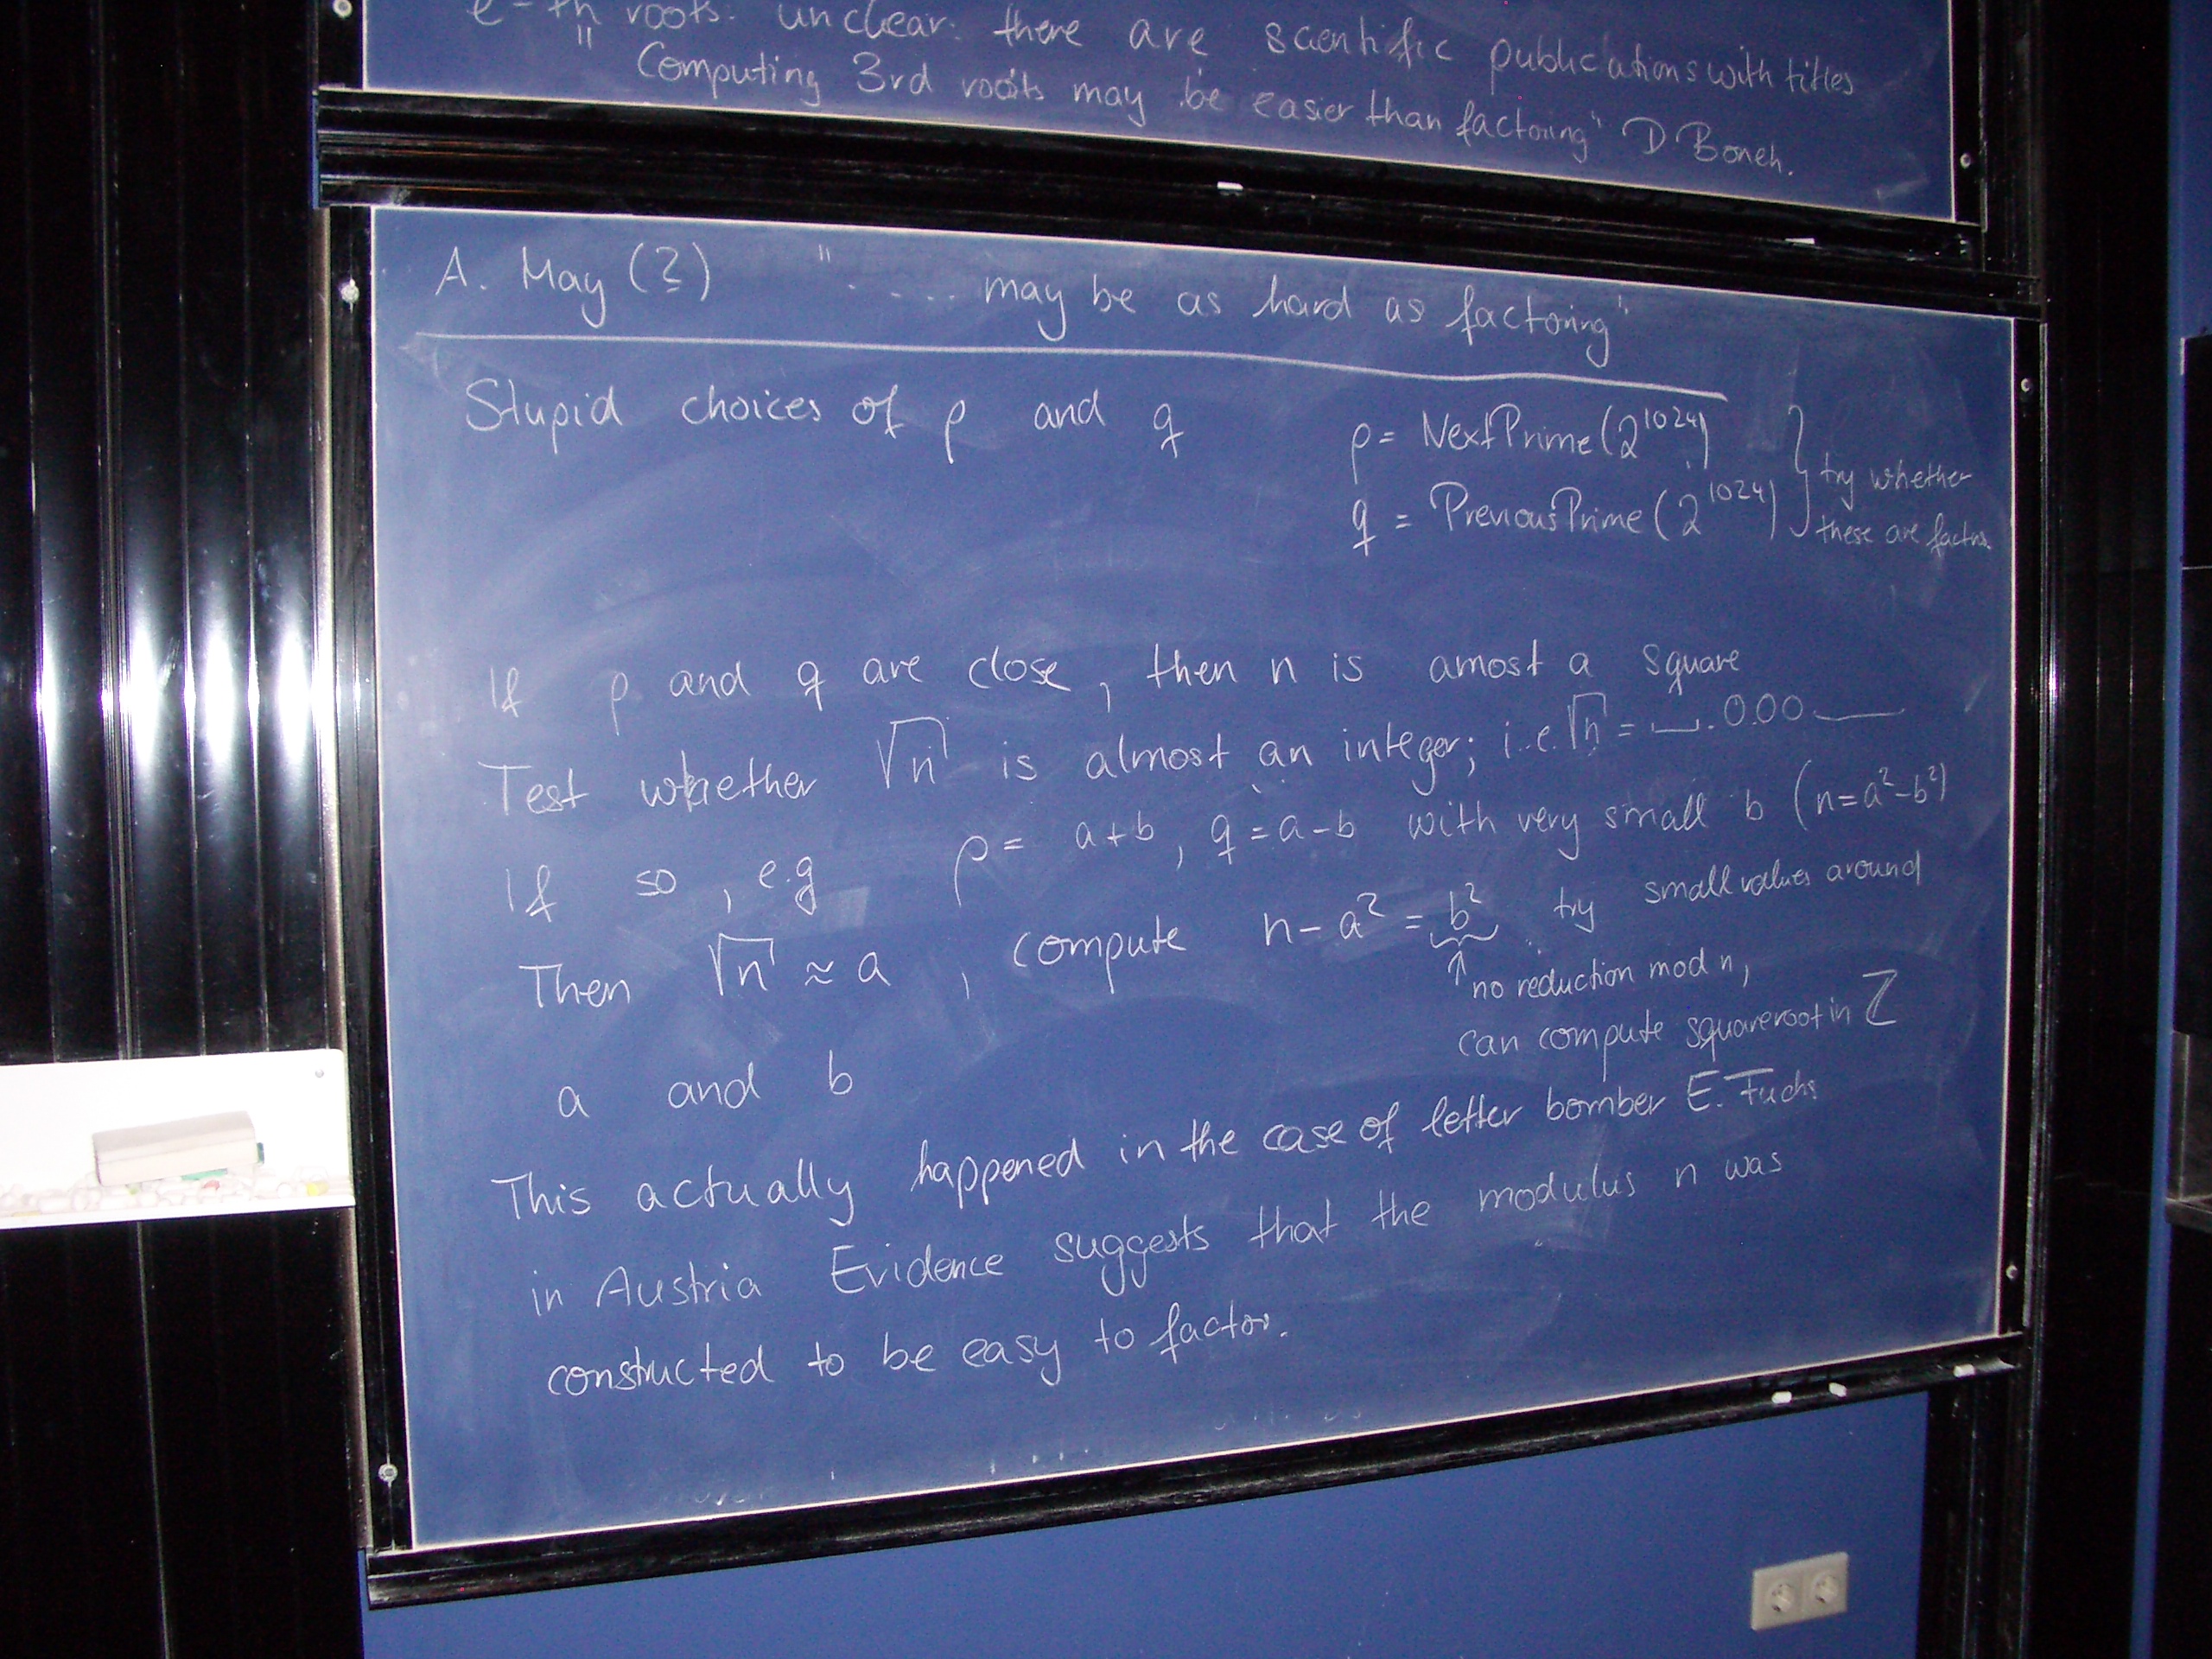 e-th roots: unclear. there are scientific publications with titles
"Computing 3rd roots may be easier than factoring" D Boneh.
A. May (?) " .... may be as hard as factoring"
Stupid choices of p and q
p = NextPrime(2^1024)
q = PreviousPrime(2^1024)
} try whether
these are factors.
If p and q are close, then n is amost a square
Test whether √n is almost an integer; i.e. √n = __.000__
If so, e.g p = a+b, q = a-b with very small b (n=a²-b²)
Then √n ≈ a, compute n-a² = b² try small values around
↑ no reduction mod n,
can compute squareroot in Z
a and b
This actually happened in the case of letter bomber E. Fuchs
in Austria Evidence suggests that the modulus n was
constructed to be easy to factor.